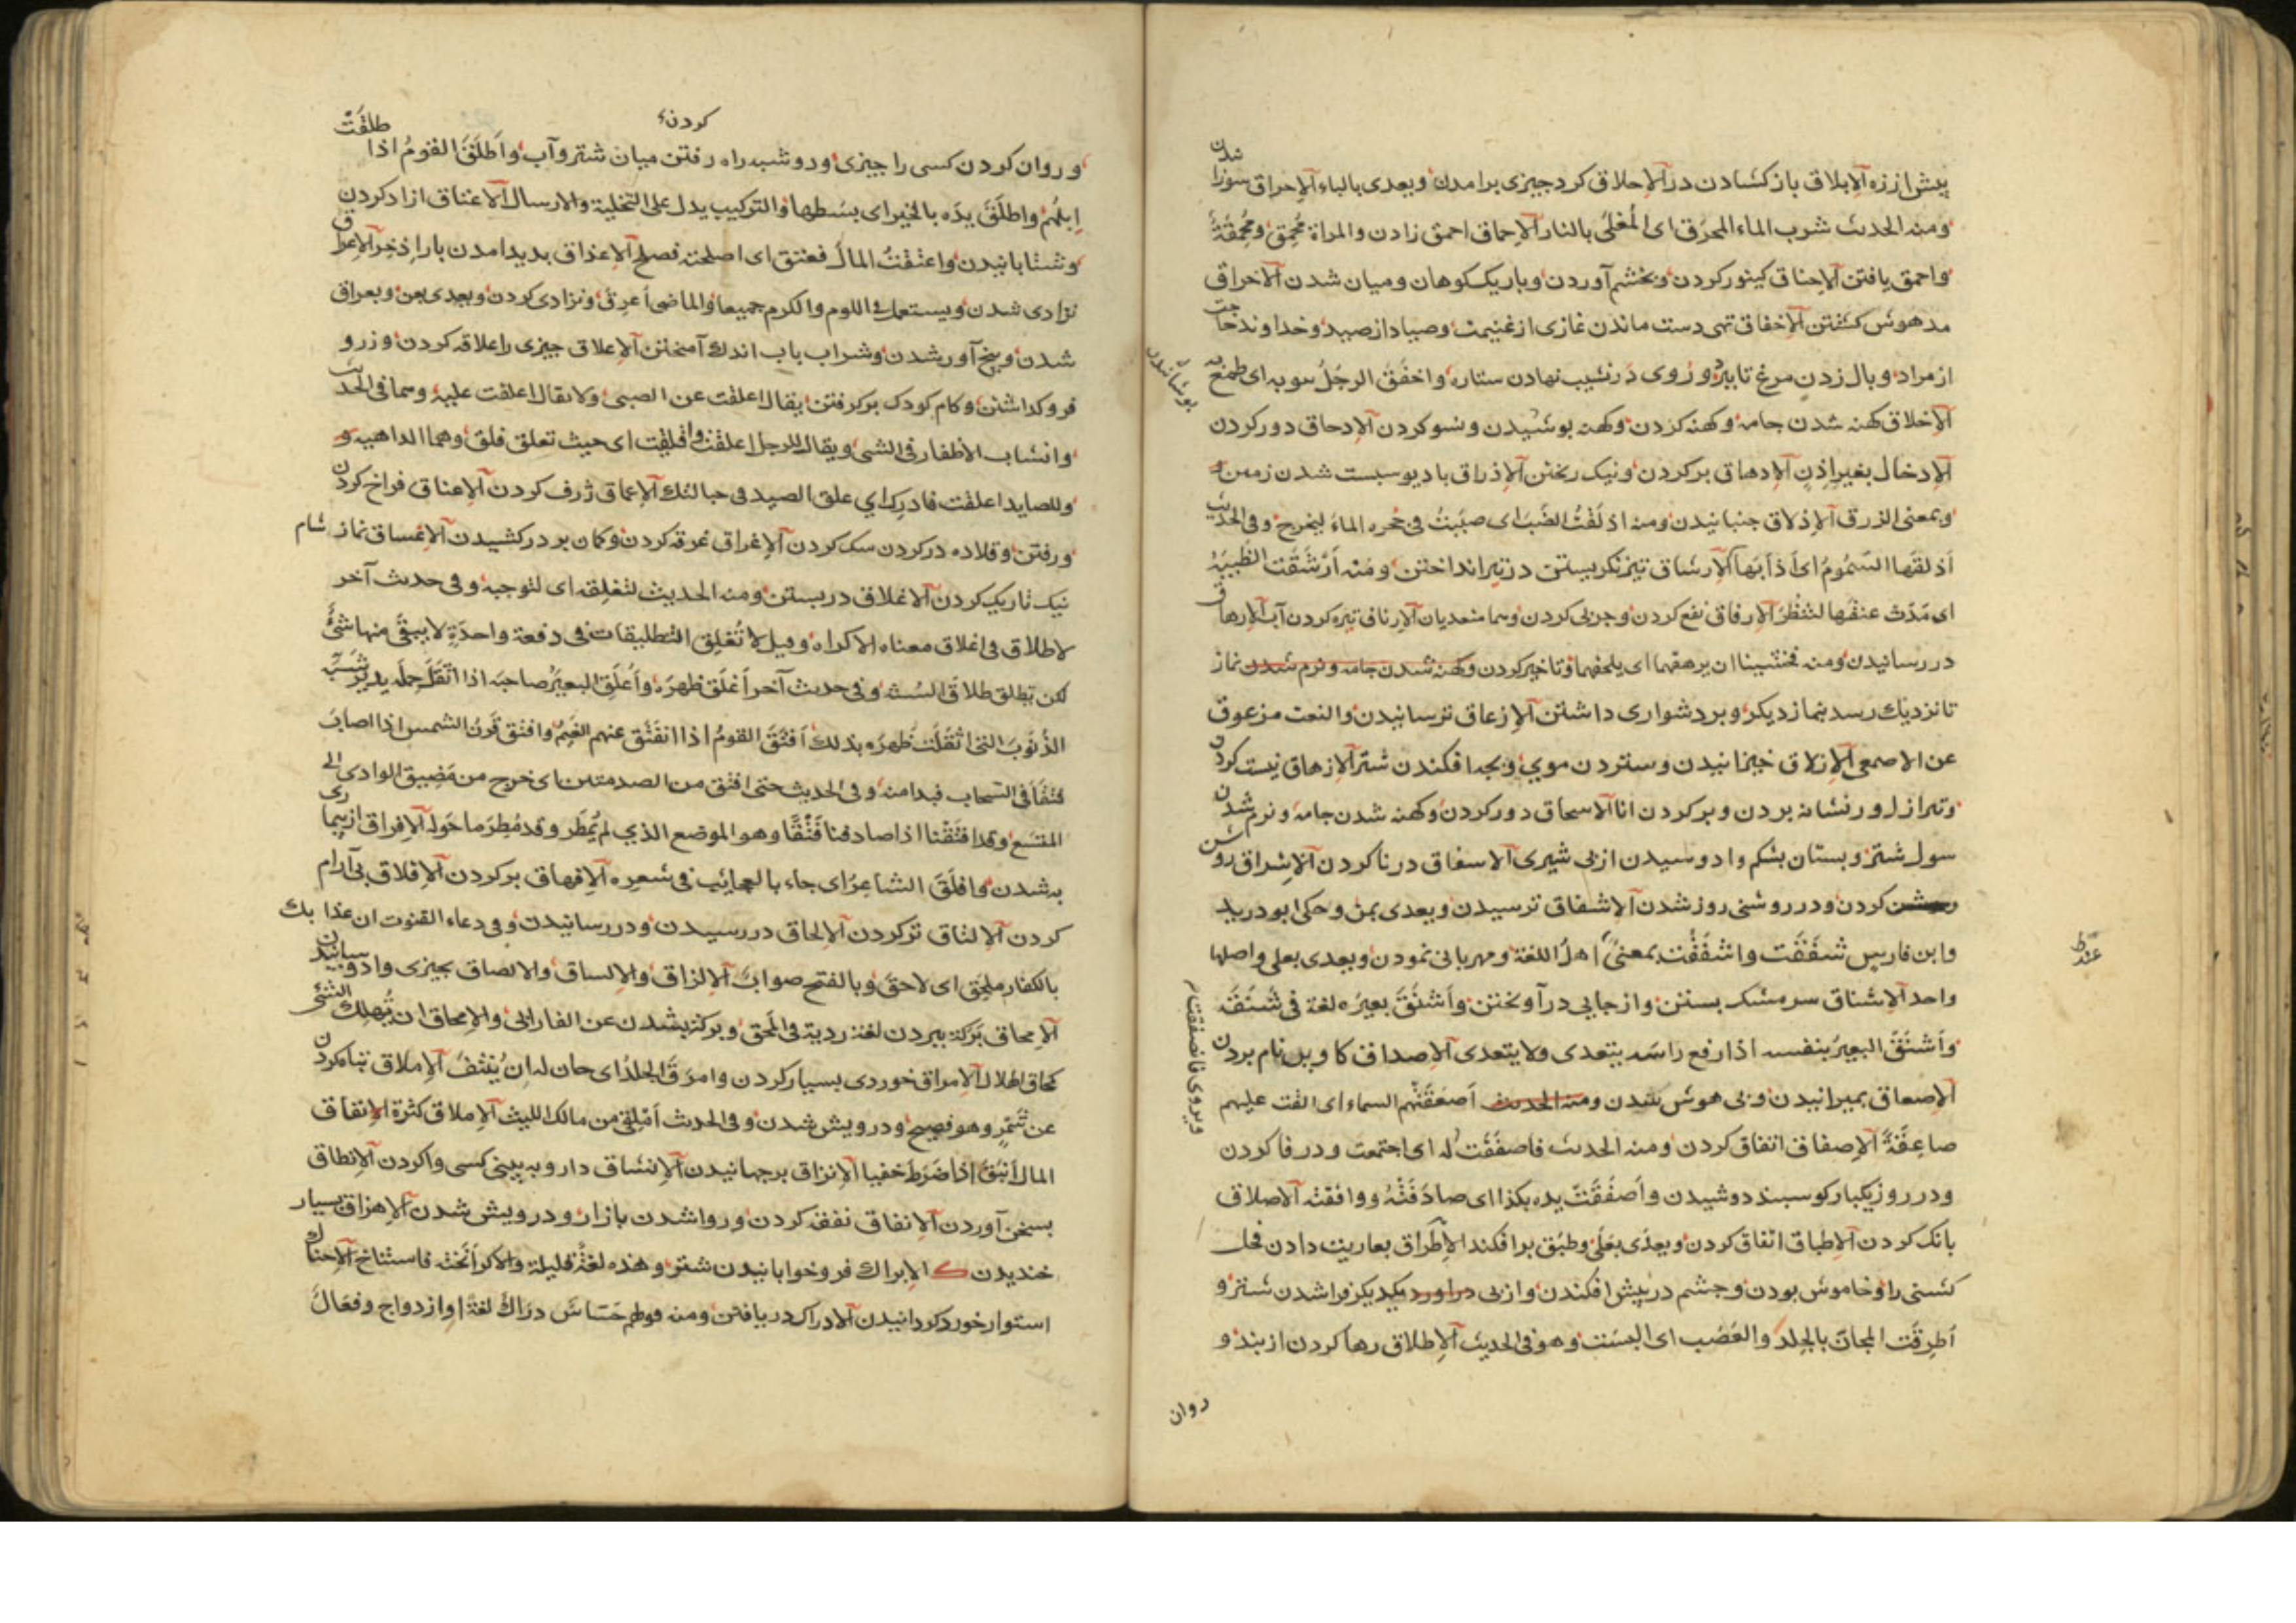 پیش از زه الإبلاق باز کشادن در الإحلاق کرد چیزی برامدن ویعدی بالباء الإحراق سوزا شدن
ومنه الحدیث شرب الماء المحرق ای المغلی بالنار الإحماق احمق زادن والمراة محمق ومحمقة
واحمق یافتن الإحناق کینور کردن وبخشم آوردن وباریک کوهان ومیان شدن الاخراق
مدهوش کشتن الإخفاق تهی دست ماندن غازی از غنیمت وصیاد از صید وخداوند حاجت
از مراد وبال زدن مرغ تا بپرد وروی در نشیب نهادن ستاره واخفق الرجل بثوبه ای طمع به
الإخلاق کهنه شدن جامه وکهنه کردن وکهنه پوشیدن ونسو کردن الإدحاق دور کردن
پوشانیدن
الإدخال بغیر اذن الإدهاق پر کردن ونیک ریختن الإذراق با دیو سبست شدن زمین و
وبمعنی الزرق الإذلاق جنبانیدن ومنه اذلقت الضب ای صببت فی جحره الماء لیخرج وفی الحدیث
اذلقها السموم ای اذابها الإرشاق تیز نکریستن در تیر انداختن ومنه ارشقت الظبیة
ای مدت عنقها لتنظر الإرفاق نفع کردن وچربی کردن وهما متعدیان الإرناق تیره کردن آب الإرهاق
در رسانیدن ومنه فخشینا ان یرهقهما ای یلحقهما وتاخیر کردن وکهنه شدن جامه ونرم شدن نماز
تا نزدیک رسد بنماز دیکر وبر دشواری داشتن الإزعاق ترسانیدن والنعت مزعوق
عن الاصمعی الإزلاق خیزانیدن وستردن موی وبچه افکندن شتر الإزهاق نیست کردن
وتیر از لور نشانه بردن وپر کردن انا الاسحاق دور کردن وکهنه شدن جامه ونرم شدن
سول شتر وپستان بشکم وا دوسیدن از بی شیری الاسفاق در نا کردن الإشراق روشن
کردن ودر روشنی روز شدن الاشفاق ترسیدن ویعدی بمن وحکی ابو درید
وابن فارس شفقت واشفقت بمعنی اهل اللغة ومهربانی نمودن ویعدی بعلی واصلها
واحد الإشناق سر مشک بستن واز جایی در آویختن واشنق بعیره لغة فی شنقه
واشنق البعیر بنفسه اذا رفع راسه یتعدی ولا یتعدی الإصداق کاوین نام بردن
الإصعاق بمیرانیدن وبی هوش شدن ومنه الحدیث اصعقتهم السماء ای القت علیهم
صاعقة الإصفاق اتفاق کردن ومنه الحدیث فاصفقت له ای اجتمعت ودر فا کردن
ودر روز یکبار کوسبند دوشیدن واصفقت یده بکذا ای صادفته ووافقته الاصلاق
بانک کردن الإطباق اتفاق کردن ویعدی بعلی وطبق برافکند الإطراق بعاریت دادن فحل
کشنی را وخاموش بودن وچشم در پیش افکندن واز پی یکدیکر فرا شدن شتر و
اطرقت المجان بالجلد والعصب ای البست وهو فی الحدیث الإطلاق رها کردن از بند و
روان
وروان کردن کسی را چیزی ودو شبه راه رفتن میان شتر وآب واطلق القوم اذا طلقت
ابلهم واطلق یده بالخیر ای بسطها والترکیب یدل علی التخلیة والارسال الاعتاق ازاد کردن
وشتابانیدن واعتقت المال فعتق ای اصلحته فصلح الإعذاق پدید امدن بار اذخر الإعراق
نژادی شدن ویستعمل فی اللوم والکرم جمیعا والماضی اعرق ونژادی کردن ویعدی بعن وبعراق
شدن وبیخ آور شدن وشراب باب اندک آمیختن الإعلاق چیزی را علاقه کردن وزرو
فرو کداشتن وکام کودک بر کرفتن یقال اعلقت عن الصبی ولا یقال اعلقت علیه وهما فی الحدیث
وانشاب الاظفار فی الشی ویقال للرجل اعلقت وافلقت ای جیت بعلق فلق وهما الداهیه و
وللصاید اعلقت فادرک ای علق الصید فی حبالتک الإعماق ژرف کردن الإعناق فراخ کردن
ورفتن وقلاده در کردن سک کردن الإغراق غرقه کردن وکمان بر در کشیدن الإغساق نماز شام
نیک تاریک کردن الاغلاق در بستن ومنه الحدیث لتغلقه ای لتوجبه وفی حدیث آخر
لا طلاق فی اغلاق معناه الاکراه وقیل لا تغلق التطلیقات فی دفعة واحدة لا یبقی منها شئ
لکن تطلق طلاق السنه وفی حدیث آخر اغلق ظهره واغلق البعیر صاحبه اذا اثقل حمله
الذنوب التی اثقلت ظهره بذلک افتق القوم اذا انفتق عنهم الغیم وافتق قرن الشمس اذا اصاب
فتقا فی السحاب فبدا منه وفی الحدیث حتی افتق من الصدمتین ای خرج من مضیق الوادی الی
المتسع وقد افتقنا اذا صادفنا فتقا وهو الموضع الذی لم یمطر وقد مطر ما حوله الإفراق از بیماری
به شدن وافلق الشاعر ای جاء بالعجائب فی شعره الإفهاق پر کردن الإقلاق بی آرام
کردن الإلثاق تر کردن الإلحاق در رسیدن ودر رسانیدن وفی دعاء القنوت ان عذابک
بالکفار ملحق ای لاحق وبالفتح صواب الإلزاق والإلساق والالصاق بچیزی وا دوسانیدن
الإمحاق برکة ببردن لغة ردیة فی المحق وبرکة بشدن عن الفارابی والإمحاق ان تهلک الشئ
کمحاق الهلال الإمراق خوردی بسیار کردن وامرق الجلد ای حان له ان ینتف الإملاق تباه کردن
عن شمر وهو فصیح ودرویش شدن وفی الحدیث املقی من مالک اللیث الإملاق کثرة الإنفاق
المال انبق اذا ضرط خفیا الإنزاق بر جهانیدن الإنشاق دارو به بینی کسی وا کردن الإنطاق
بسخن آوردن الإنفاق نفقه کردن وروا شدن بازار ودرویش شدن الإهزاق بسیار
خندیدن ک الإبراک فرو خوابانیدن شتر وهذه لغة قلیلة والاکثر انخته فاستناخ الإحناک
استوار خورد کردانیدن الادراک در یافتن ومنه قولهم حساس دراک لغة او ازدواج وفعال